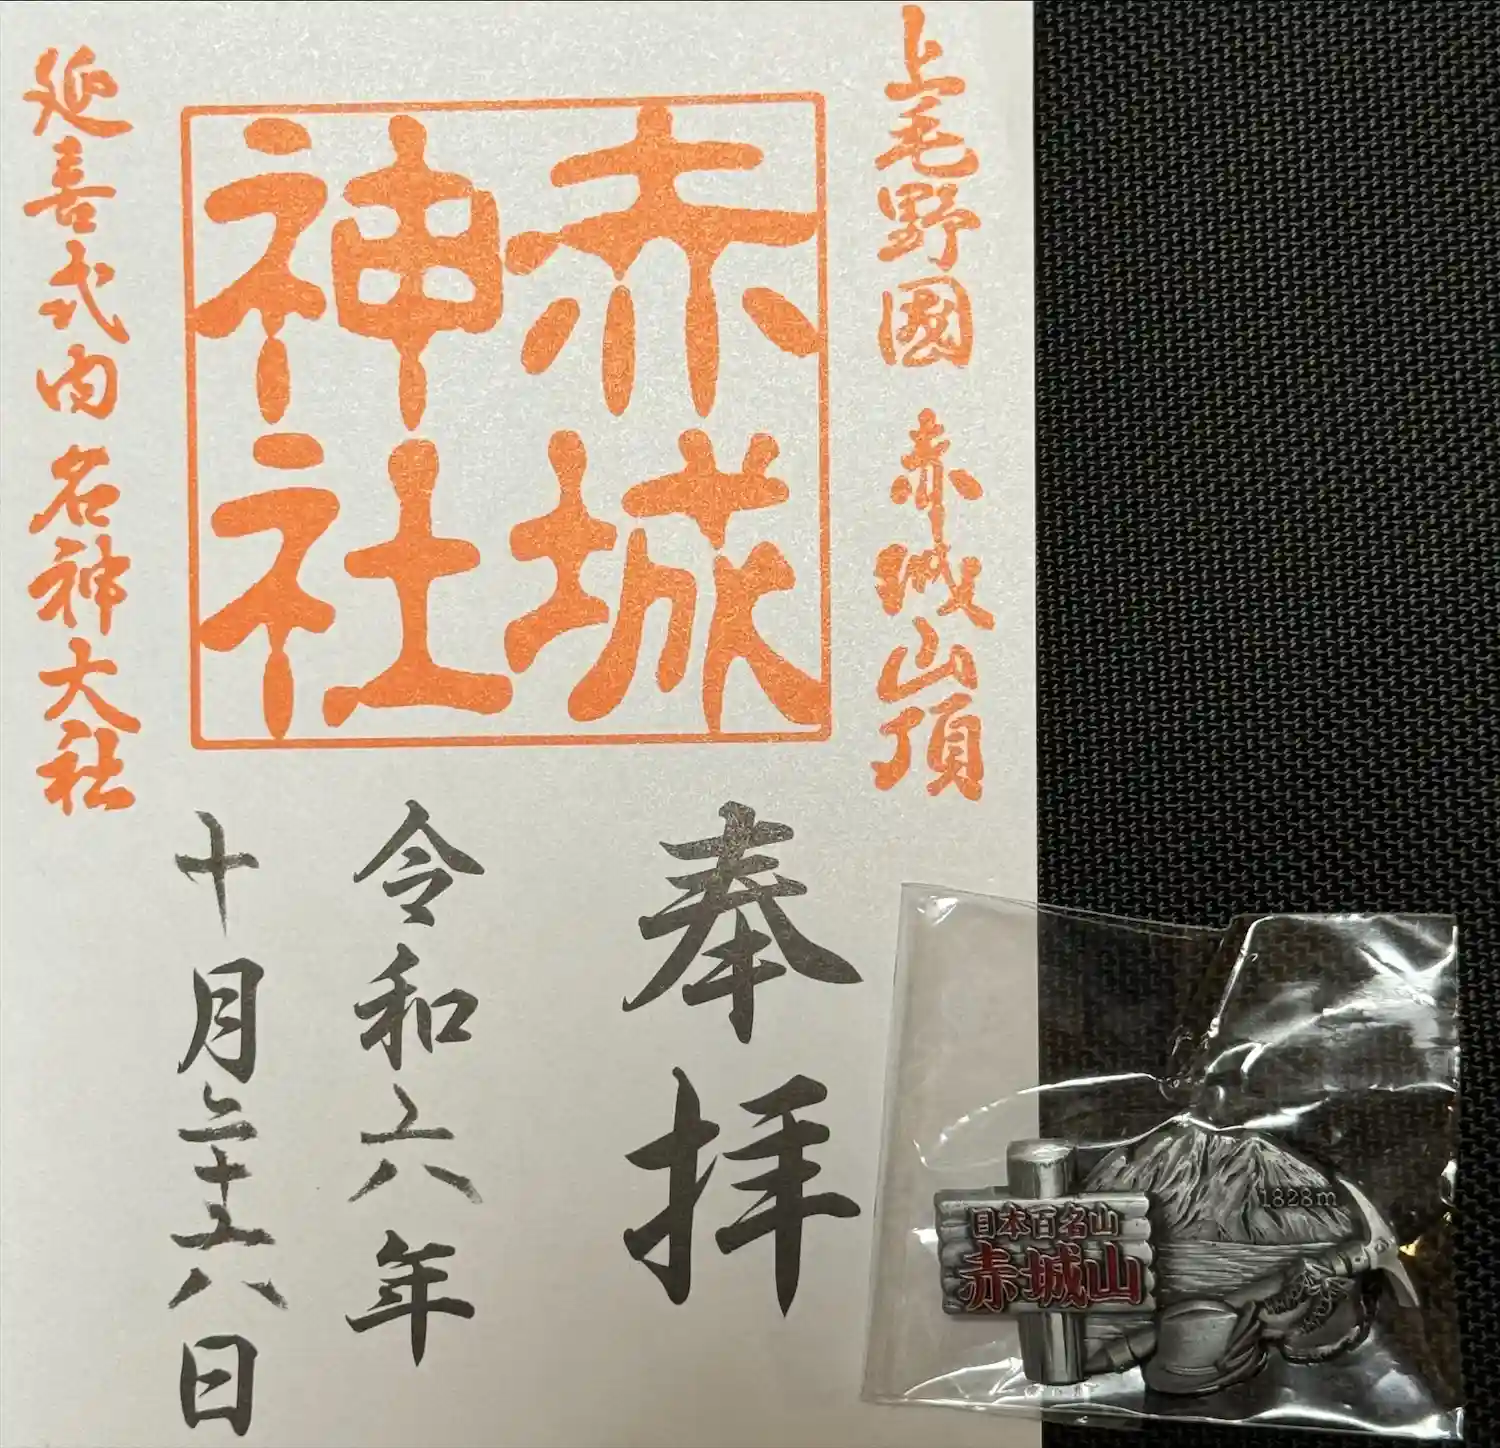 上毛野國 赤城山頂
赤城
神社
延喜式内 名神大社
奉拝
令和六年
十月二十六日
1828m
日本百名山
赤城山